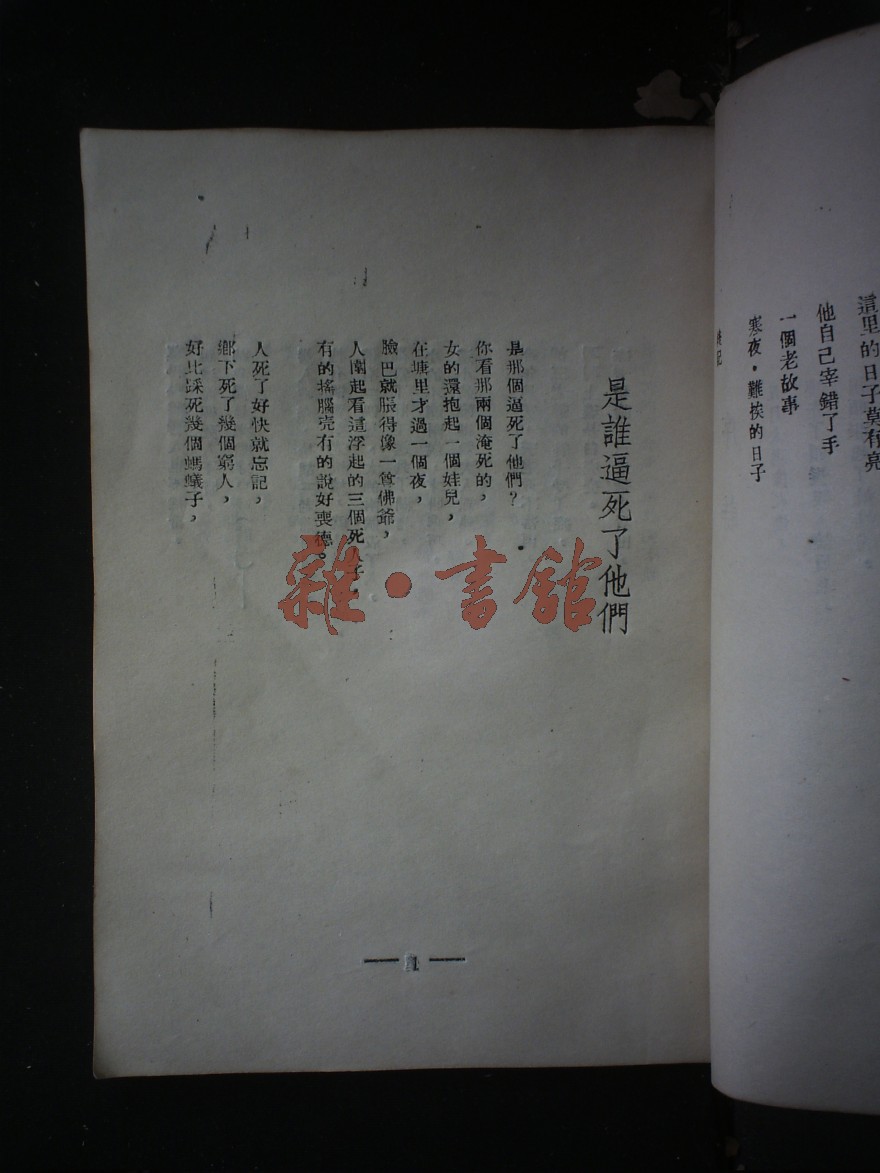 這里的日子莫有亮
他自己宰錯了手
一個老故事
寒夜·難挨的日子
後記
是誰逼死了他們
是那個逼死了他們？
你看那兩個淹死的，
女的還抱起一個娃兒，
在塘里才過一個夜，
臉巴就脹得像一尊佛爺，
人圍起看這浮起的三個死人子，
有的搖腦壳有的說好喪德。
人死了好快就忘記，
鄉下死了幾個窮人，
好比踩死幾個螞蟻子，
1
雜·書館